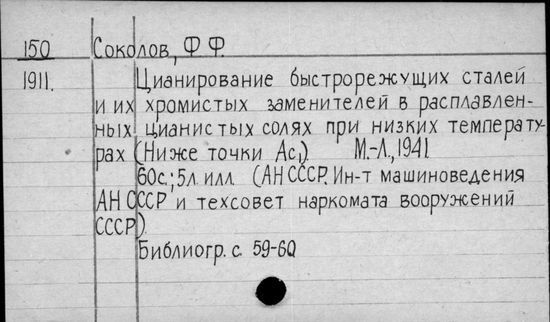 150 Соколов, Ф.Ф.
1911. Цианирование быстрорежущих сталей
и их хромистых заменителей в расплавлен-
ных цианистых солях при низких температу-
рах (Ниже точки Ac₁). М.-Л., 1941.
60с.; 5л. илл. (АН СССР. Ин-т машиноведения
АН СССР и техсовет наркомата вооружений
СССР).
Библиогр. с. 59-60